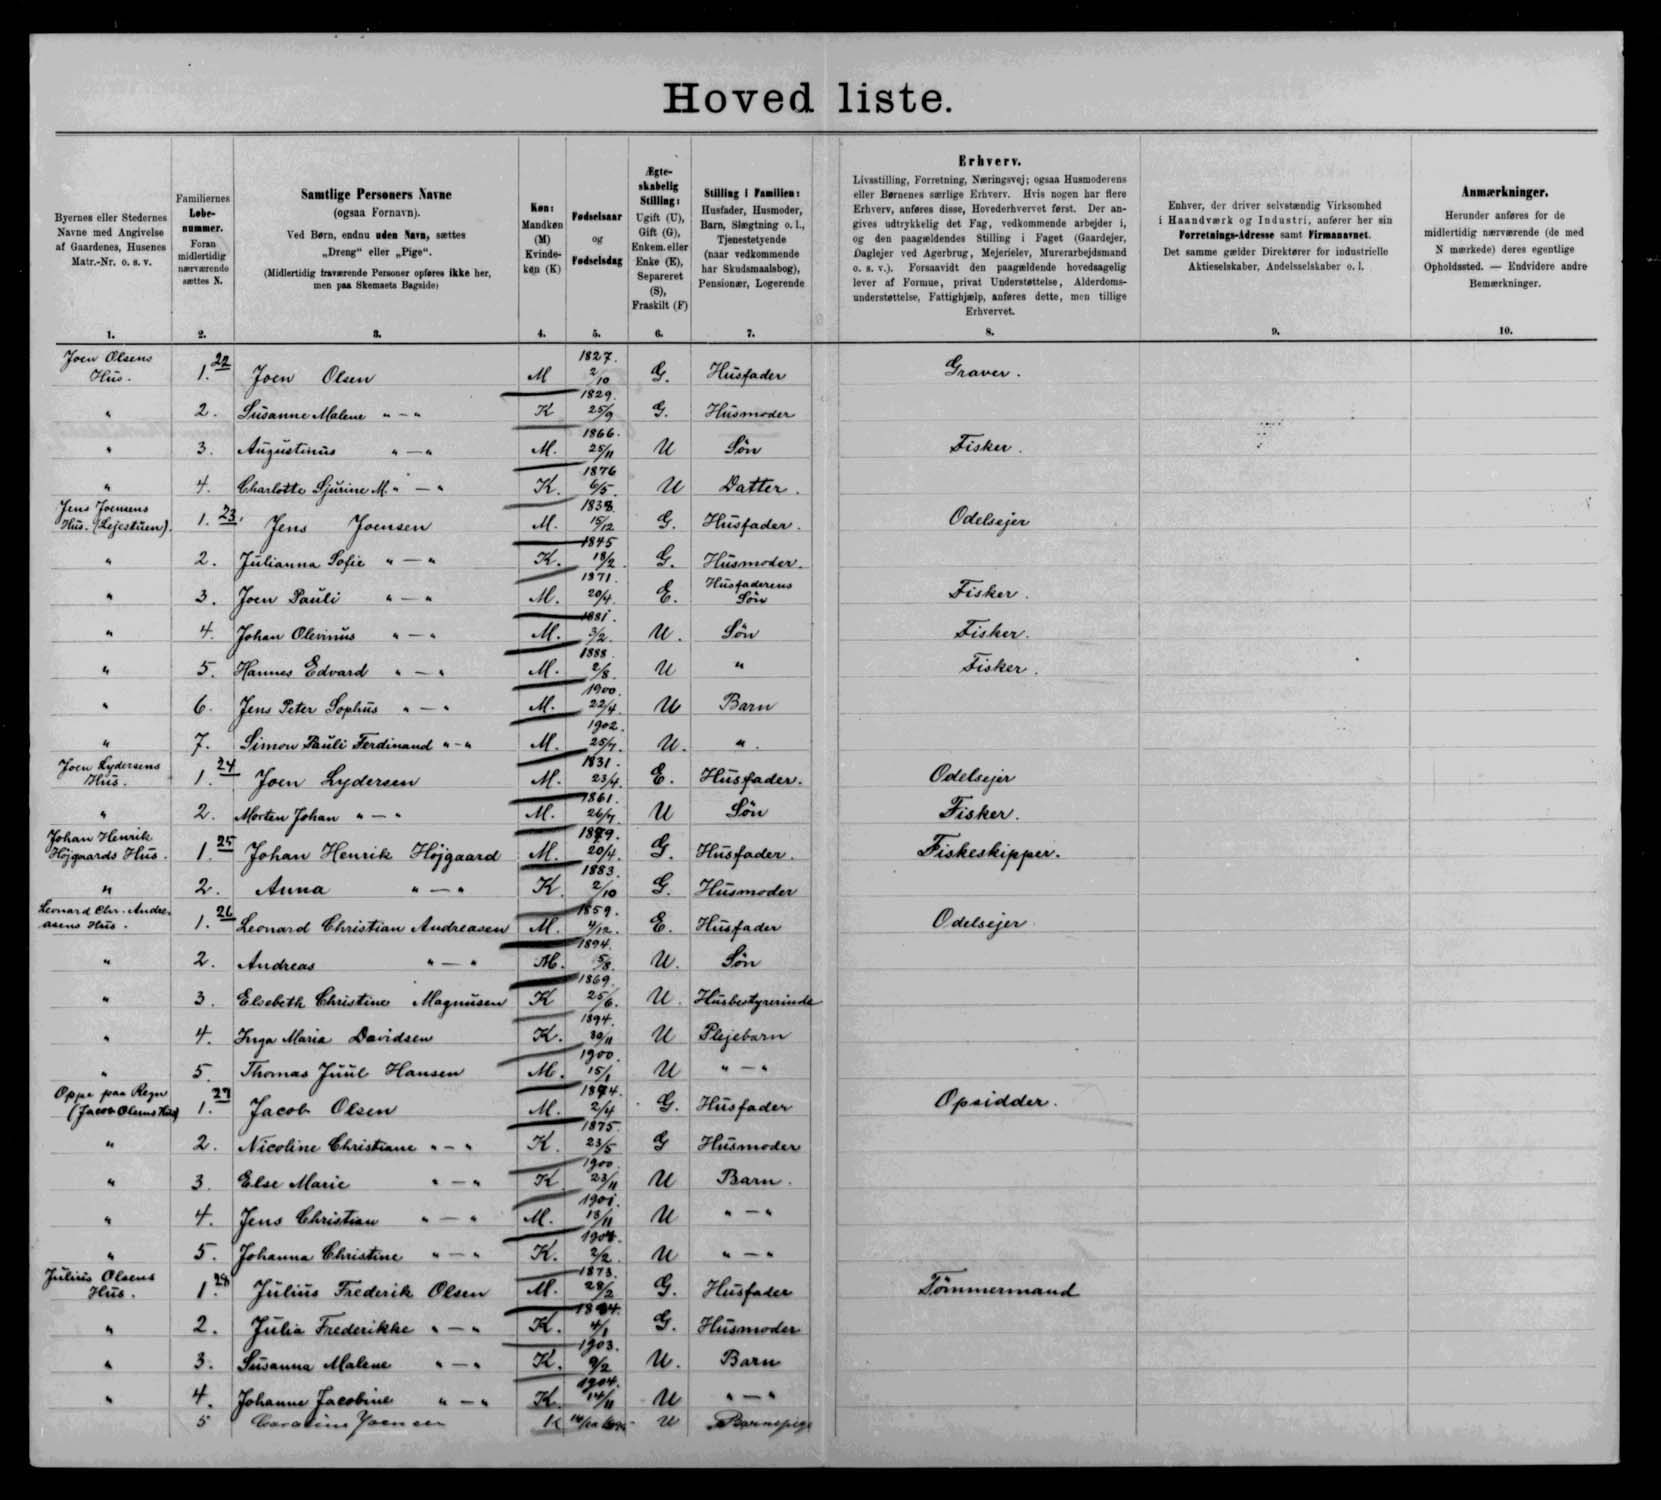 Hovedliste.
Byernes eller Stedernes
Navne med Angivelse
af Gaardenes, Husenes
Matr.-Nr. o. s. v.
Familiernes
Løbe-
nummer.
Foran
midlertidig
nærværende
sættes N.
Samtlige Personers Navne
(ogsaa Fornavn).
Ved Børn, endnu uden Navn, sættes
„Dreng“ eller „Pige“.
(Midlertidig fraværende Personer opføres ikke her,
men paa Skemaets Bagside)
Køn:
Mandkøn
(M)
Kvinde-
køn (K)
Fødselsaar
og
Fødselsdag
Ægte-
skabelig
Stilling:
Ugift (U),
Gift (G),
Enkem. eller
Enke (E),
Separeret
(S),
Fraskilt (F)
Stilling i Familien:
Husfader, Husmoder,
Barn, Slægtning o. l.,
Tjenestetyende
(naar vedkommende
har Skudsmaalsbog),
Pensionær, Logerende
Erhverv.
Livsstilling, Forretning, Næringsvej; ogsaa Husmoderens
eller Børnenes særlige Erhverv. Hvis nogen har flere
Erhverv, anføres disse, Hovederhvervet først. Der an-
gives udtrykkelig det Fag, vedkommende arbejder i,
og den paagældendes Stilling i Faget (Gaardejer,
Daglejer ved Agerbrug, Mejerielev, Murerarbejdsmand
o. s. v.). Forsaavidt den paagældende hovedsagelig
lever af Formue, privat Understøttelse, Alderdoms-
understøttelse, Fattighjælp, anføres dette, men tillige
Erhvervet.
Enhver, der driver selvstændig Virksomhed
i Haandværk og Industri, anfører her sin
Forretnings-Adresse samt Firmanavnet.
Det samme gælder Direktører for industrielle
Aktieselskaber, Andelsselskaber o. l.
Anmærkninger.
Herunder anføres for de
midlertidig nærværende (de med
N mærkede) deres egentlige
Opholdssted. — Endvidere andre
Bemærkninger.
1. 2. 3. 4. 5. 6. 7. 8. 9. 10.
Joen Olsens Hus. 1. 22 Joen Olsen M 1827. 2/10 G. Husfader Graver.
" 2. Susanne Malene " — " K 1829. 25/9 G. Husmoder
" 3. Augustinus " — " M. 1866. 25/11 U Søn Fisker.
" 4. Charlotte Sjurine M. " — " K. 1876 6/5. U Datter.
Jens Joensens Hus. (Lejestuen). 1. 23. Jens Joensen M. 1838. 15/12 G. Husfader. Odelsejer
" 2. Julianna Sofie " — " K. 1845 18/2. G. Husmoder.
" 3. Joen Pauli " — " M. 1871. 20/4. E. Husfaderens Søn Fisker.
" 4. Johan Olevinus " — " M. 1881. 3/2. U. Søn Fisker.
" 5. Hannes Edvard " — " M. 1888. 2/8. U " Fisker.
" 6. Jens Peter Sophus " — " M. 1900. 22/4. U Barn
" 7. Simon Pauli Ferdinand " — " M. 1902. 25/7. U. ".
Joen Lydersens Hus. 1. 24 Joen Lydersen M. 1831. 23/4. E. Husfader. Odelsejer
" 2. Morten Johan " — " M. 1861. 26/7. U Søn Fisker.
Johan Henrik Højgaards Hus. 1. 25 Johan Henrik Højgaard M. 1879. 20/4. G. Husfader. Fiskeskipper.
" 2. Anna " — " K. 1883. 2/10 G. Husmoder
Leonard Chr. Andreasens Hus. 1. 26 Leonard Christian Andreasen M. 1859. 4/12. E. Husfader Odelsejer
" 2. Andreas " — " M. 1894. 5/8. U. Søn
" 3. Elsebeth Christine Magnusen K 1869. 25/6. U. Husbestyrerinde
" 4. Inga Maria Davidsen K. 1894. 30/11 U Plejebarn
" 5. Thomas Juul Hansen M. 1900. 15/1 U " — "
Oppe paa Regn (Jacob Olsens Hus) 1. 27 Jacob Olsen M. 1874. 2/4 G. Husfader Opsidder.
" 2. Nicoline Christiane " — " K. 1875. 23/5 G Husmoder
" 3. Else Marie " — " K 1900. 23/11 U Barn.
" 4. Jens Christian " — " M. 1901. 13/11 U " — "
" 5. Johanna Christine " — " K. 2/2. U " — "
Julius Olsens Hus. 1. 28 Julius Frederik Olsen M. 1873. 28/2 G. Husfader Tømmermand
" 2. Julia Frederikke " — " K. 4/1 G. Husmoder
" 3. Susanna Malene " — " K. 1903. 9/2 U. Barn
" 4. Johanne Jacobine " — " K. 1904. 14/11 U " — "
5 Joensen K U Barnepige